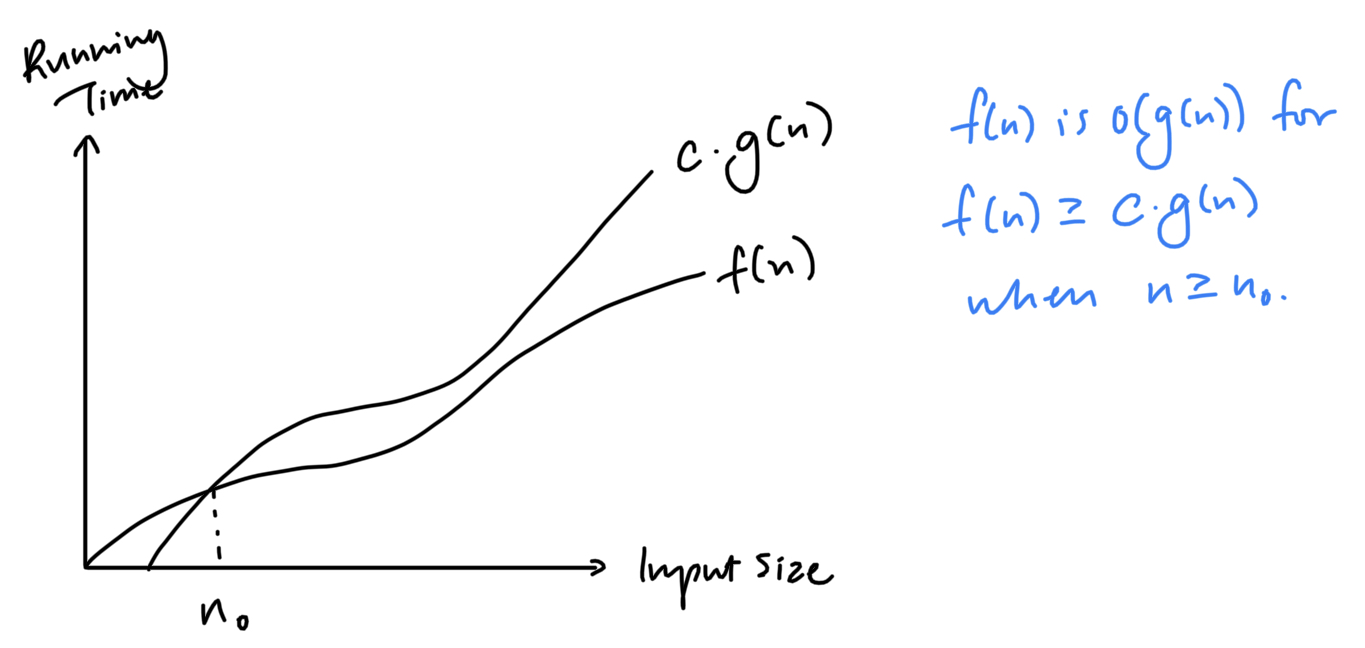 Running
Time
c·g(n)
f(n)
n₀
Input size
f(n) is O(g(n)) for
f(n) ≥ c·g(n)
when n ≥ n₀.